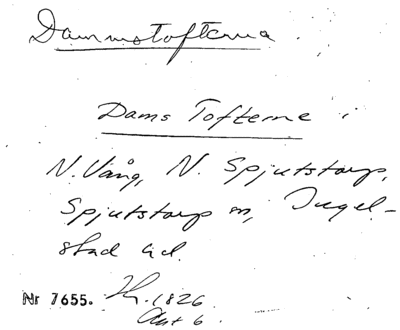 Dammstofterna.
Dams Tofterne i
N. Vång, N. Spjutstorp,
Spjutstorp sn, Ingel-
stad hd.
Nr 7655. 1826
Akt 6.